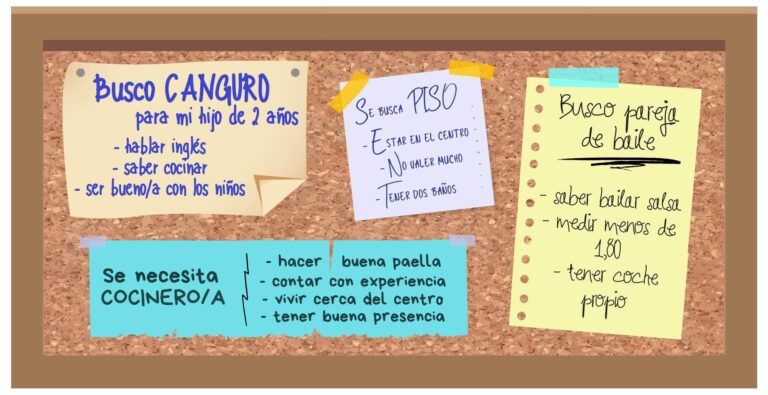 Busco CANGURO
para mi hijo de 2 años
- hablar inglés
- saber cocinar
- ser bueno/a con los niños
SE BUSCA PISO
- ESTAR EN EL CENTRO
- NO VALER MUCHO
- TENER DOS BAÑOS
Busco pareja
de baile
- saber bailar salsa
- medir menos de
1,80
- tener coche
propio
Se necesita
COCINERO/A
- hacer buena paella
- contar con experiencia
- vivir cerca del centro
- tener buena presencia